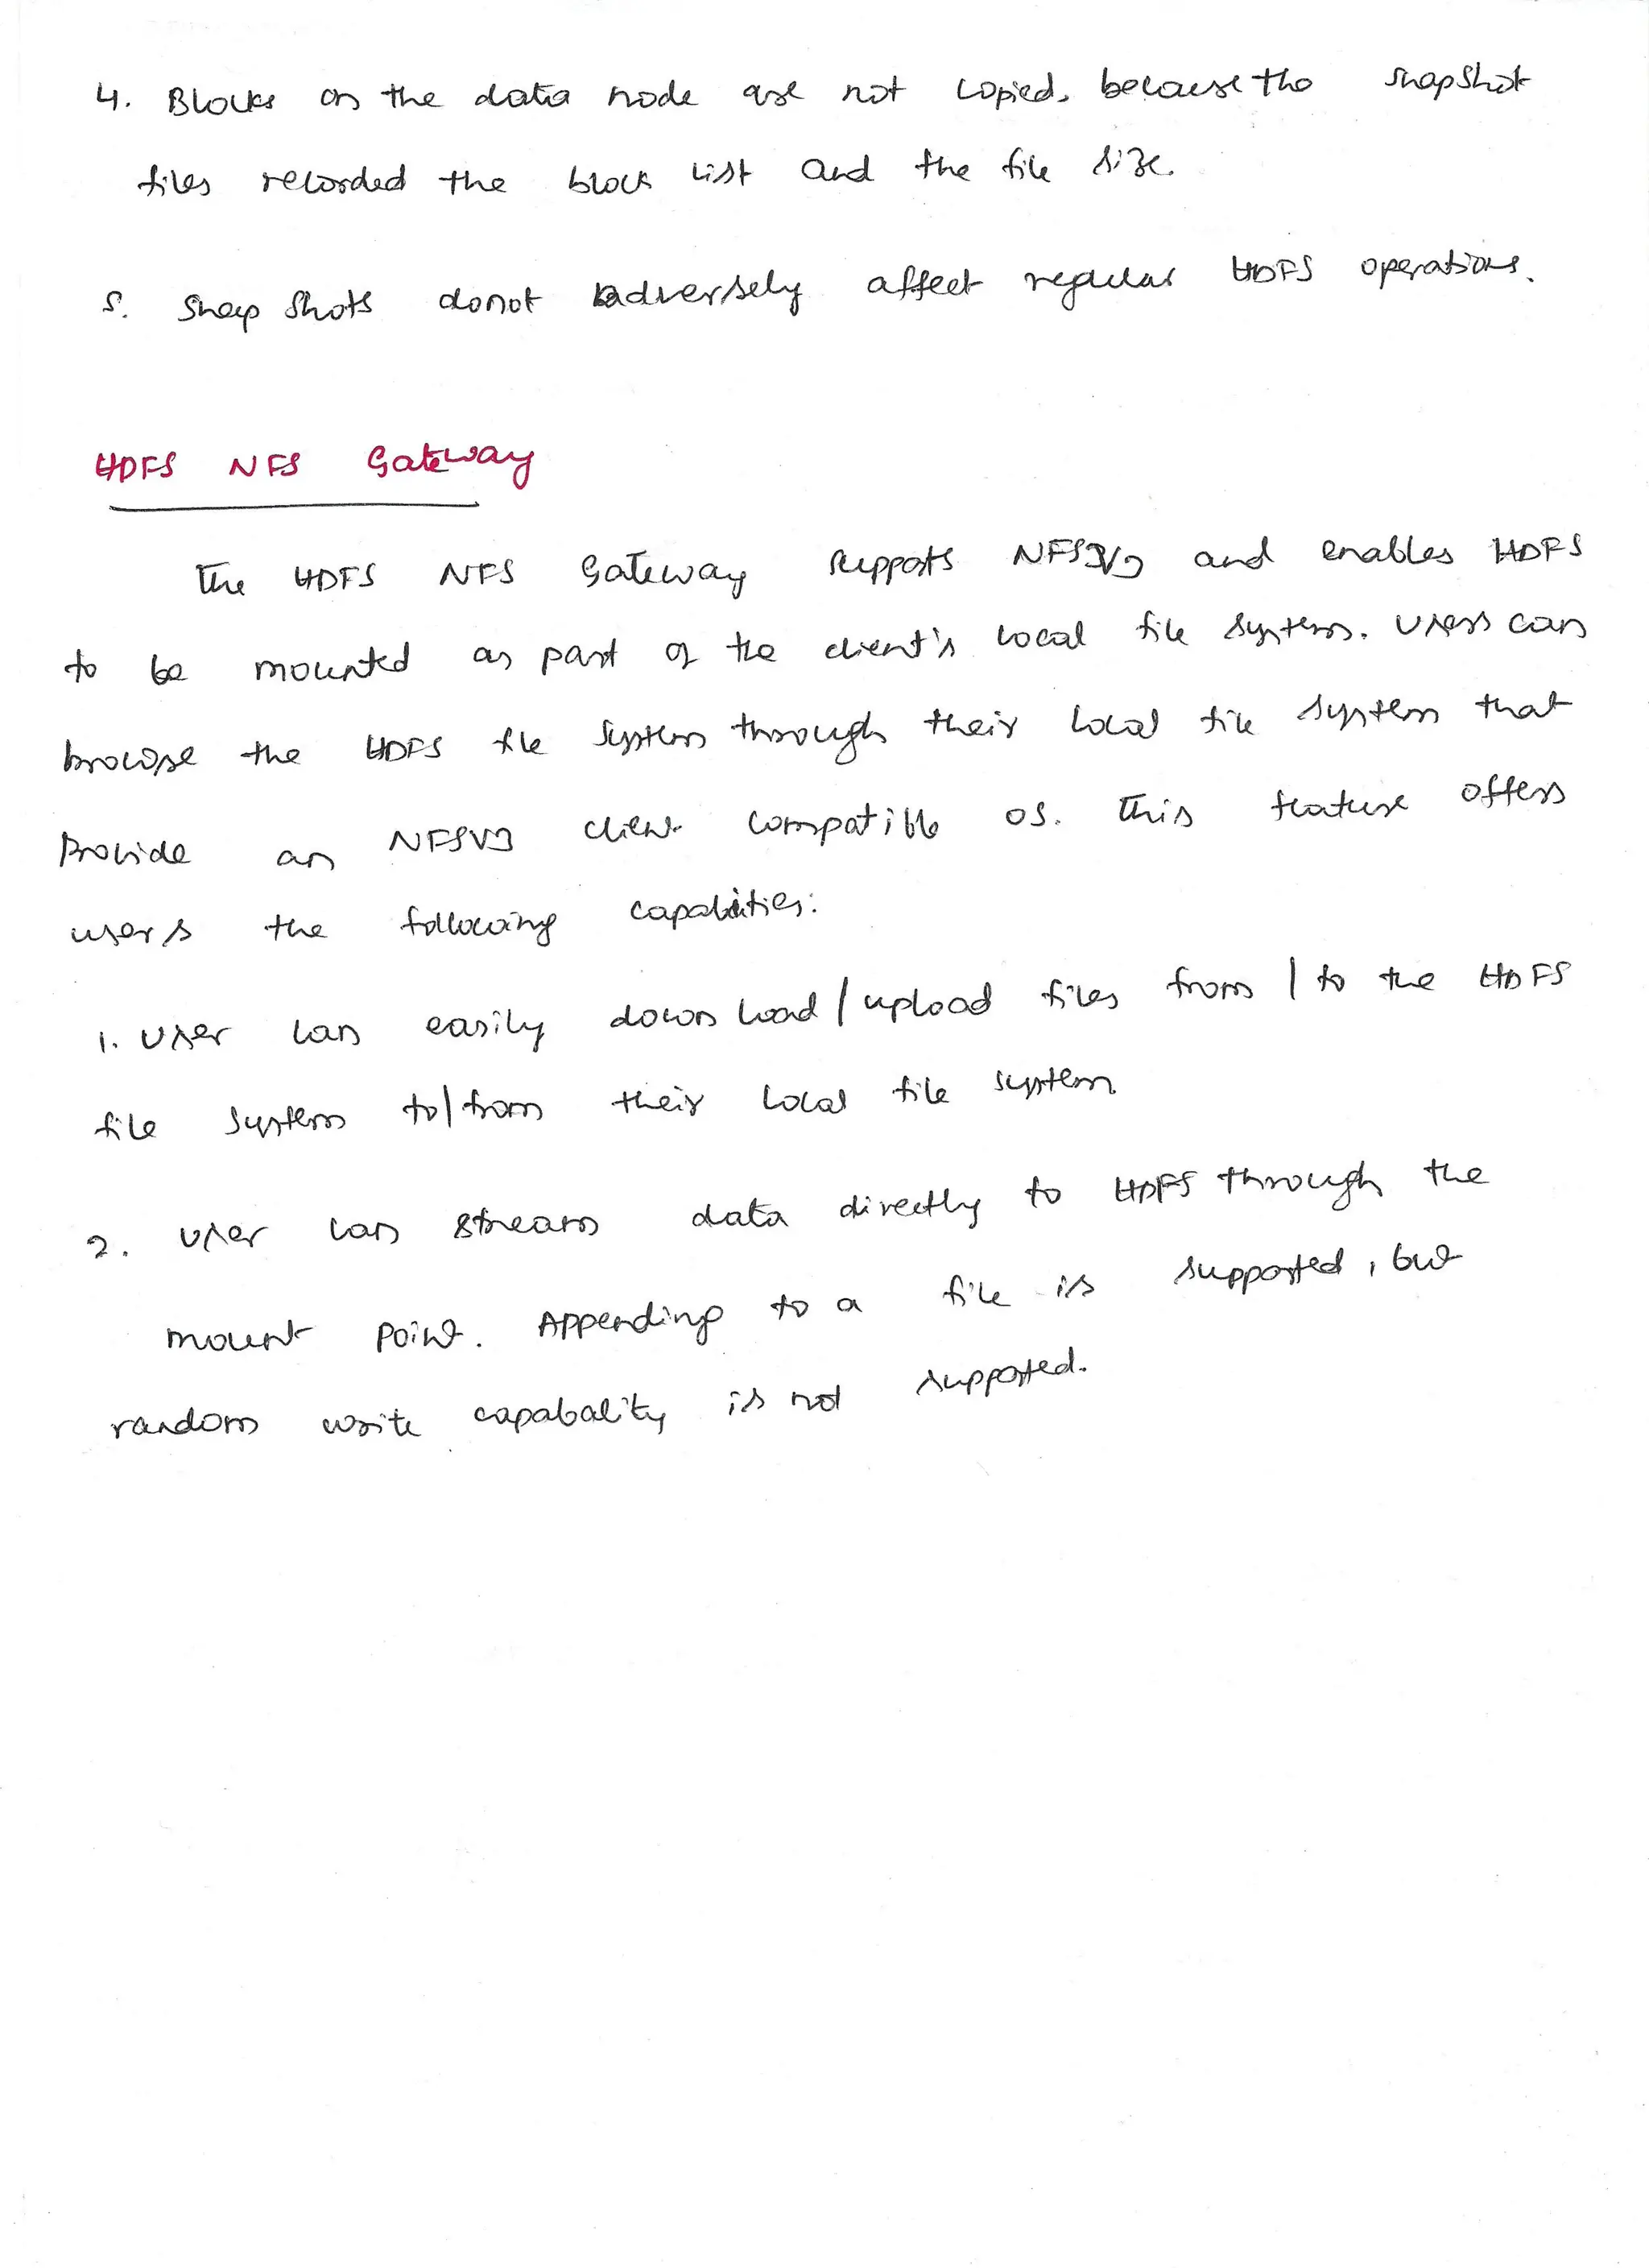 4. Blocks on the data node are not copied, because the snapshot
files recorded the block list and the file size.
5. Snap Shots donot adversely affect regular HDFS operations.
HDFS NFS Gateway
The HDFS NFS Gateway supports NFSV3 and enables HDFS
to be mounted as part of the client's local file system. Users can
browse the HDFS file system through their local file system that
Provide an NFSV3 client compatible OS. This feature offers
users the following capabilities:
1. User can easily down load / upload files from / to the HDFS
file system to/from their local file system
2. User can stream data directly to HDFS through the
mount point. Appending to a file is supported, but
random write capabality is not supported.